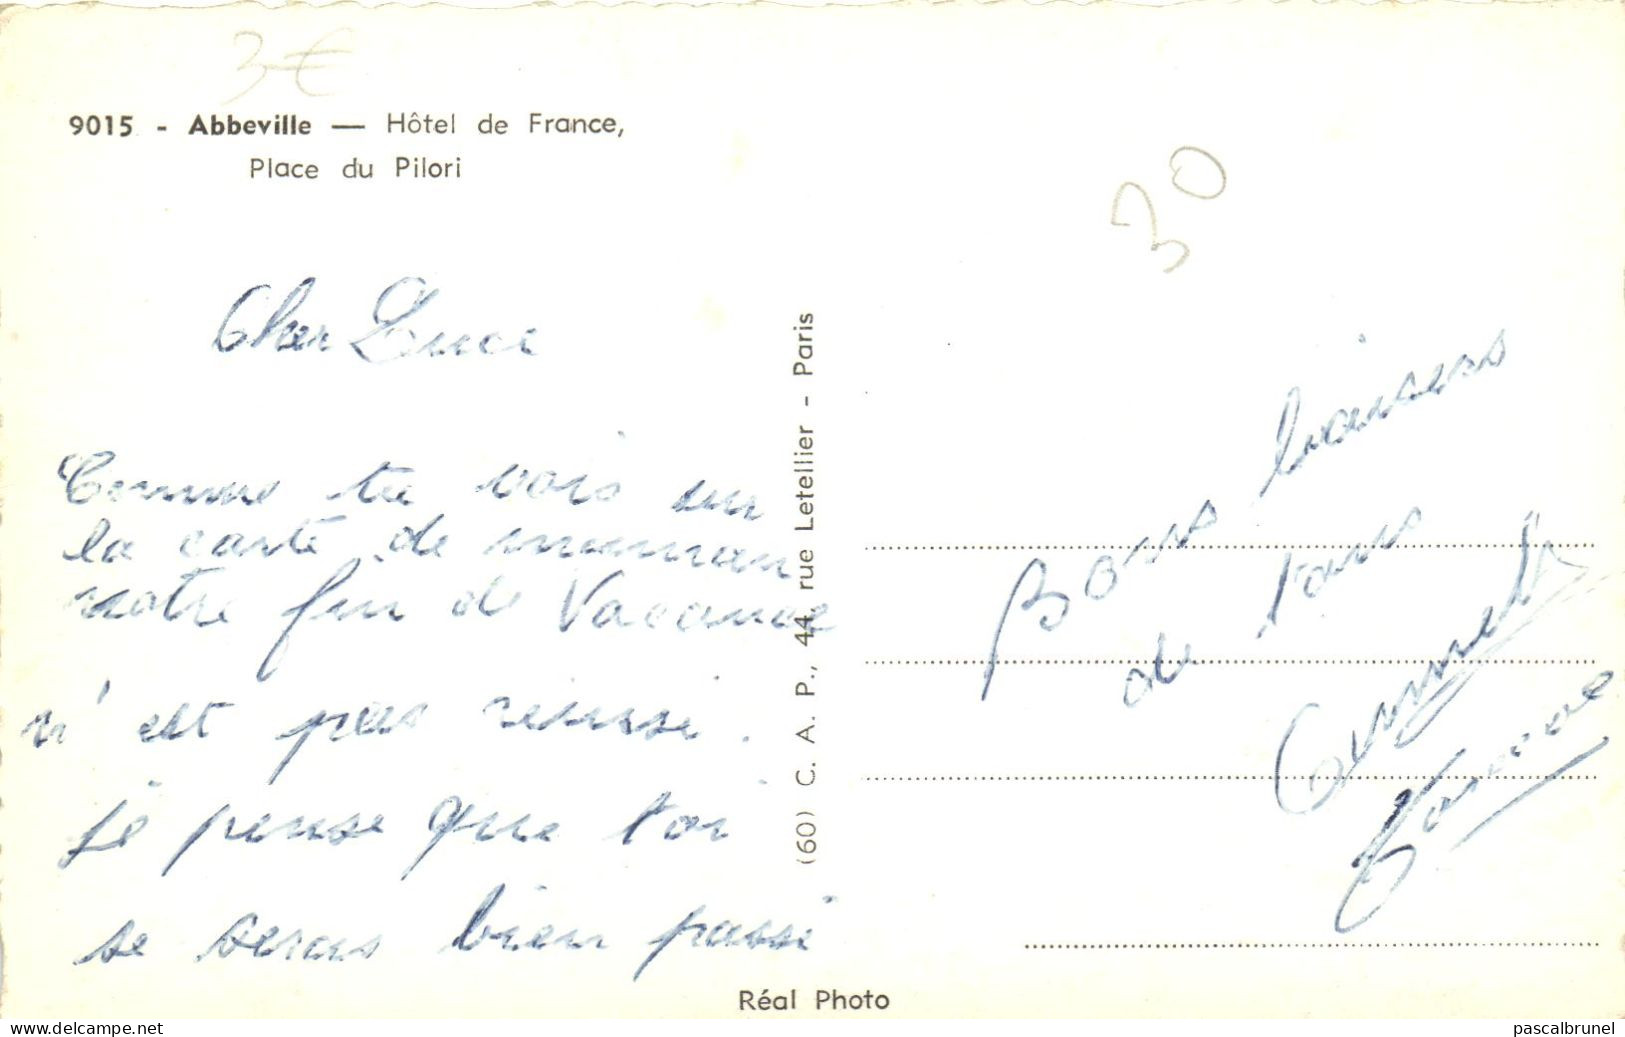 3€
9015 - Abbeville — Hôtel de France,
Place du Pilori
Cher Luce
Comme tu vois sur
la carte de maman
notre fin de Vacance
n'est pas reussi.
je pense que toi
se seras bien passi
(60) C. A. P., 44, rue Letellier - Paris
30
Bons baisers
de tous
Réal Photo
www.delcampe.net
pascalbrunel